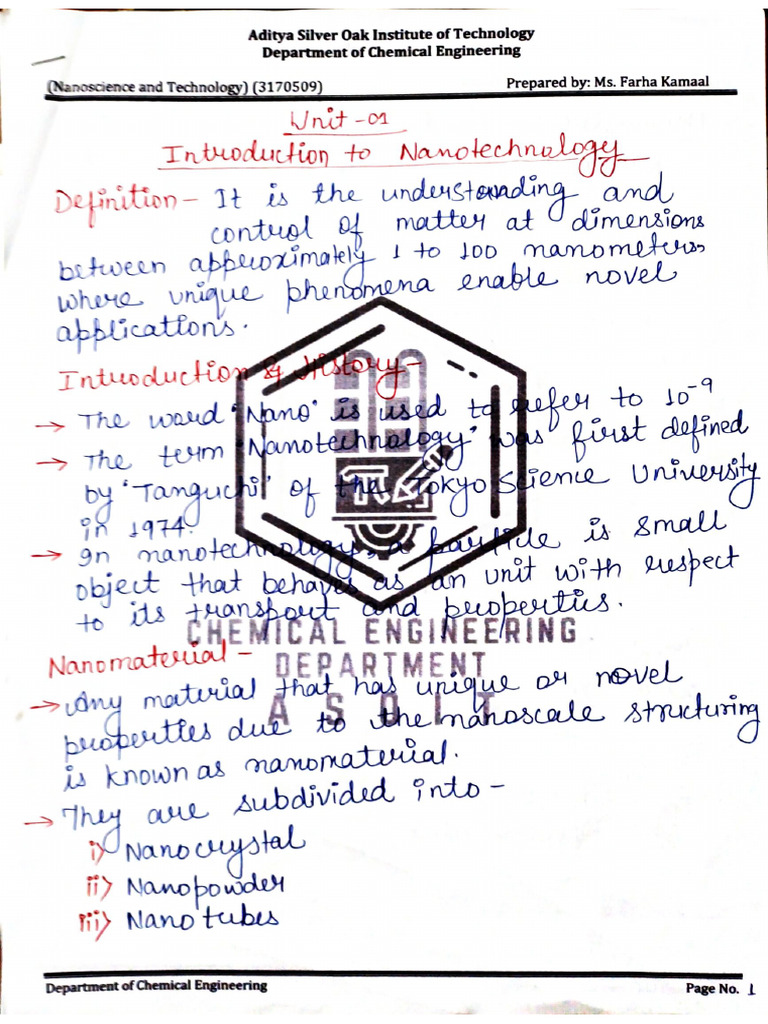 Aditya Silver Oak Institute of Technology
Department of Chemical Engineering
(Nanoscience and Technology) (3170509) Prepared by: Ms. Farha Kamaal
Unit-01
Introduction to Nanotechnology
Definition - It is the understanding and
control of matter at dimensions
between approximately 1 to 100 nanometers
where unique phenomena enable novel
applications.
Introduction & History -
→ The word "Nano" is used to refer to 10⁻⁹
→ The term "Nanotechnology" was first defined
by 'Tanguchi' of the Tokyo Science University
in 1974.
→ In nanotechnology, a particle is small
object that behaves as an unit with respect
to its transport and properties.
CHEMICAL ENGINEERING
DEPARTMENT
A S O I T
Nanomaterial -
→ Any material that has unique or novel
properties due to the nanoscale structuring
is known as nanomaterial.
→ They are subdivided into -
i) Nanocrystal
ii) Nanopowder
iii) Nanotubes
Department of Chemical Engineering Page No. 1